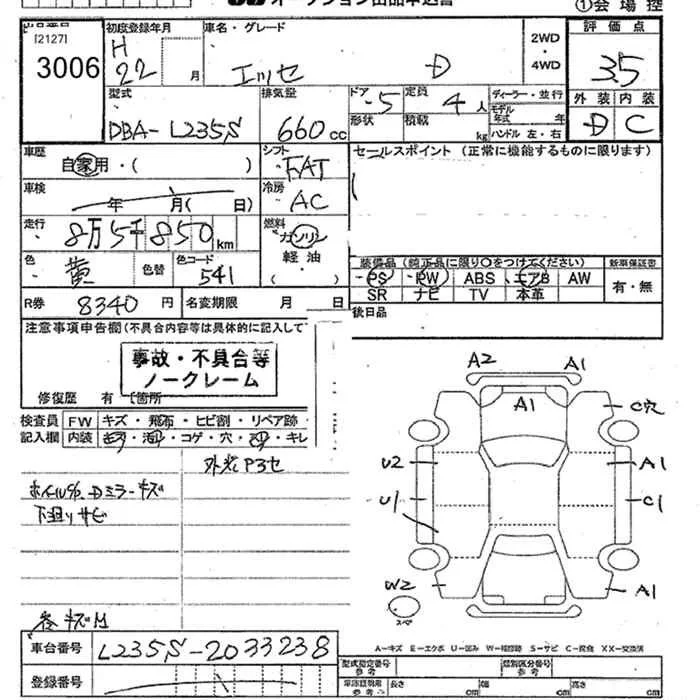 オークション出品申込書
①会場控
出品番号
[2127]
3006
初度登録年月
H
22 月
車名・グレード
エッセ D
2WD
・
4WD
評価点
3.5
外装 内装
D C
型式
DBA-L235S
排気量
660 cc
ドア
・5
形状
定員
4 人
積載 kg
ディーラー・並行
モデル
年式 年
ハンドル 左・右
車歴
自家用・( )
シフト
FAT
セールスポイント (正常に機能するものに限ります)
車検
年 月( 日)
冷房
AC
走行
8万5千850 km
燃料
ガソリン
軽油
色
黄
色替
色コード
541
装備品 (純正品に限り○をつけてください)
PS ・ PW ・ ABS エアB AW
SR ナビ TV 本革
新車保証書
有・無
R券
8340 円
名変期限 月 日
後日品
注意事項申告欄(不具合内容等は具体的に記入して
事故・不具合等
ノークレーム
修復歴 有 [箇所
検査員
記入欄
FW キズ・飛石・ヒビ割・リペア跡
内装 キズ・汚れ・コゲ・穴・スリ・キレ
外P3セ
ホイル%・Dミラーキズ
下廻りサビ
各キズH
A2
A1
A1
C穴
U2
A1
U1
C1
W2
A1
スペ
A-キズ E-エクボ U-凹み W-補修跡 S-サビ C-腐食 XX-交換済
車台番号
L235S-2033238
登録番号
型式指定番号
参考
類別区分番号
参考
車庫証明用
参考
長さ cm
幅 cm
高さ cm